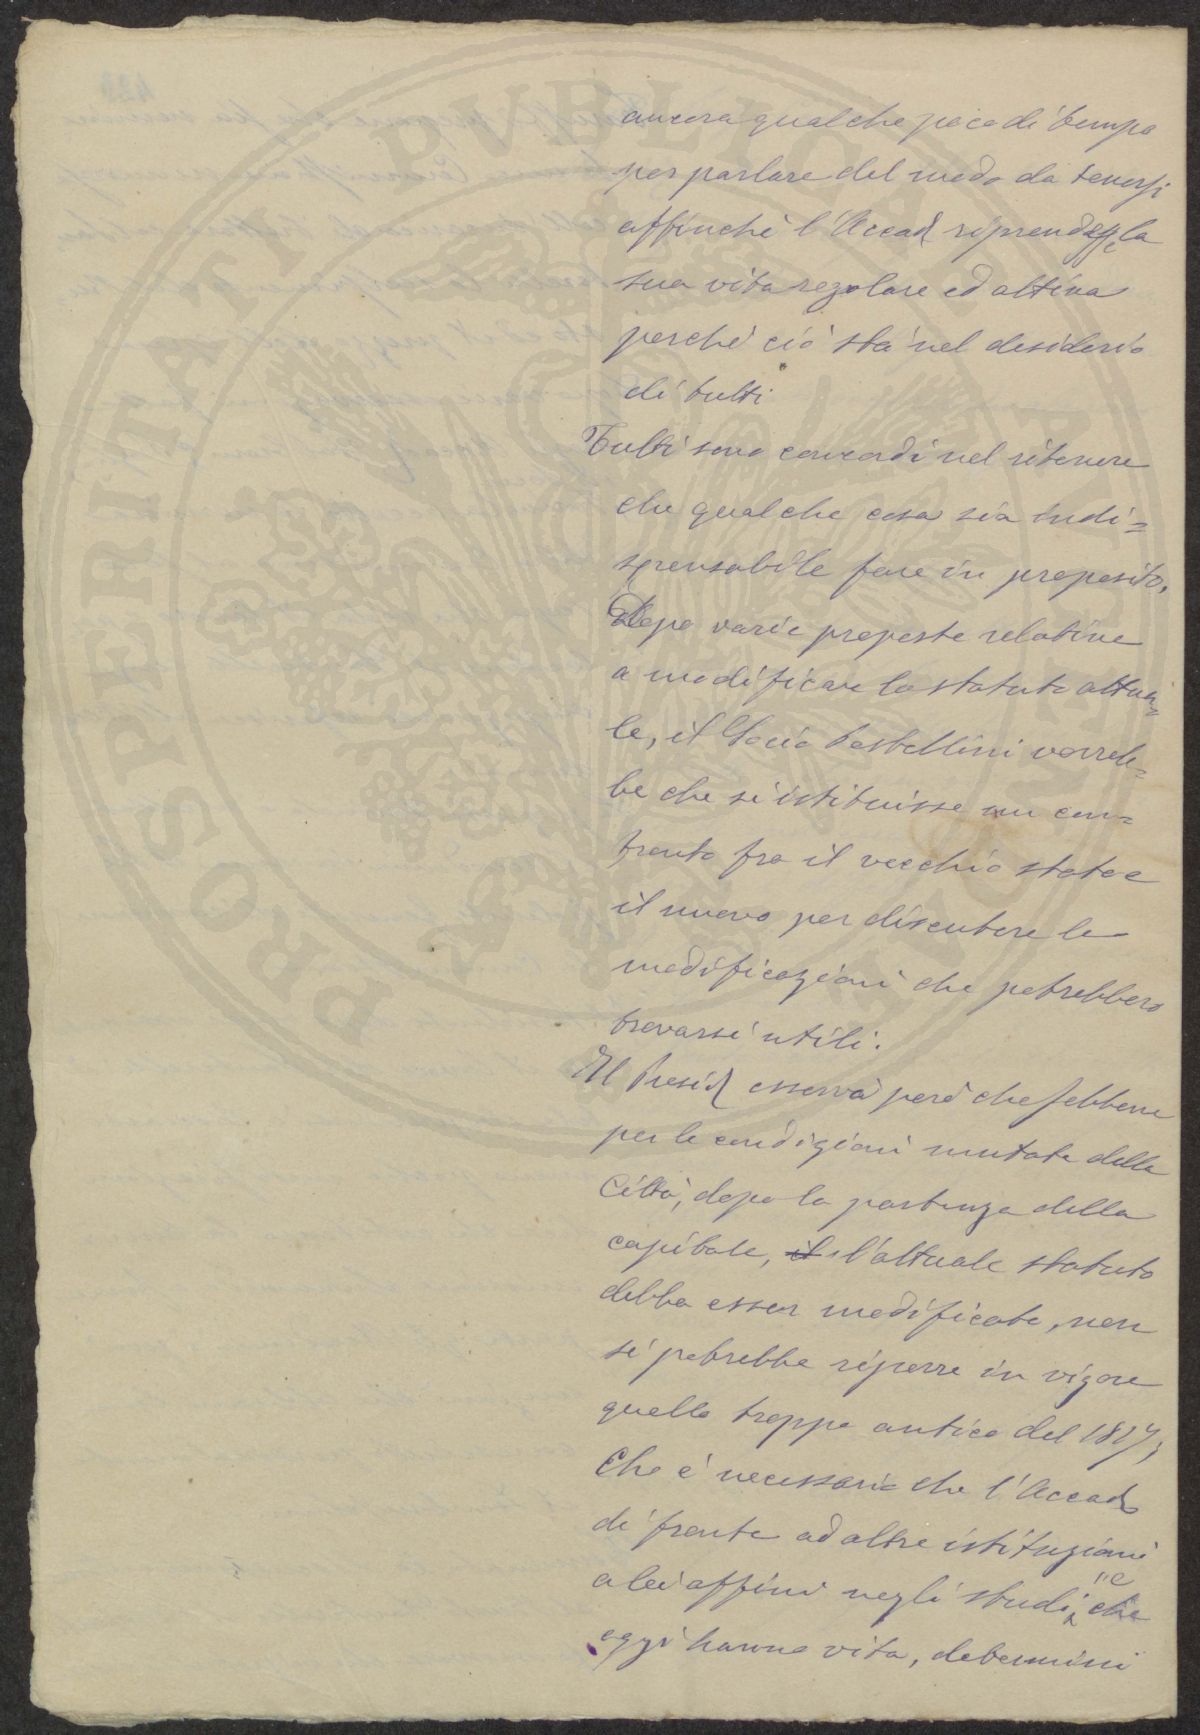 ancora qualche poco di tempo
per parlare del modo da tenersi
affinchè l'Accad. riprenda la
sua vita regolare ed attiva
perchè ciò sta nel desiderio
di tutti
Tutti sono concordi nel ritenere
che qualche cosa sia indi=
spensabile fare in proposito.
Dopo varie proposte relative
a modificare lo statuto attua=
le, il Socio Pastellini vorreb=
be che si istituisse un con=
fronto fra il vecchio stato e
il nuovo per discutere le
modificazioni che potrebbero
trovarsi utili.
Il Presid. osserva però che sebbene
per le condizioni mutate della
Città, dopo la partenza della
capitale, il l'attuale statuto
debba esser modificato, non
si potrebbe riporre in vigore
quello troppo antico del 1817;
Che è necessario che l'Accad.
di fronte ad altre istituzioni
a lei affini negli studi, che
oggi hanno vita, determini
PROSPERITATI PVBLICAE